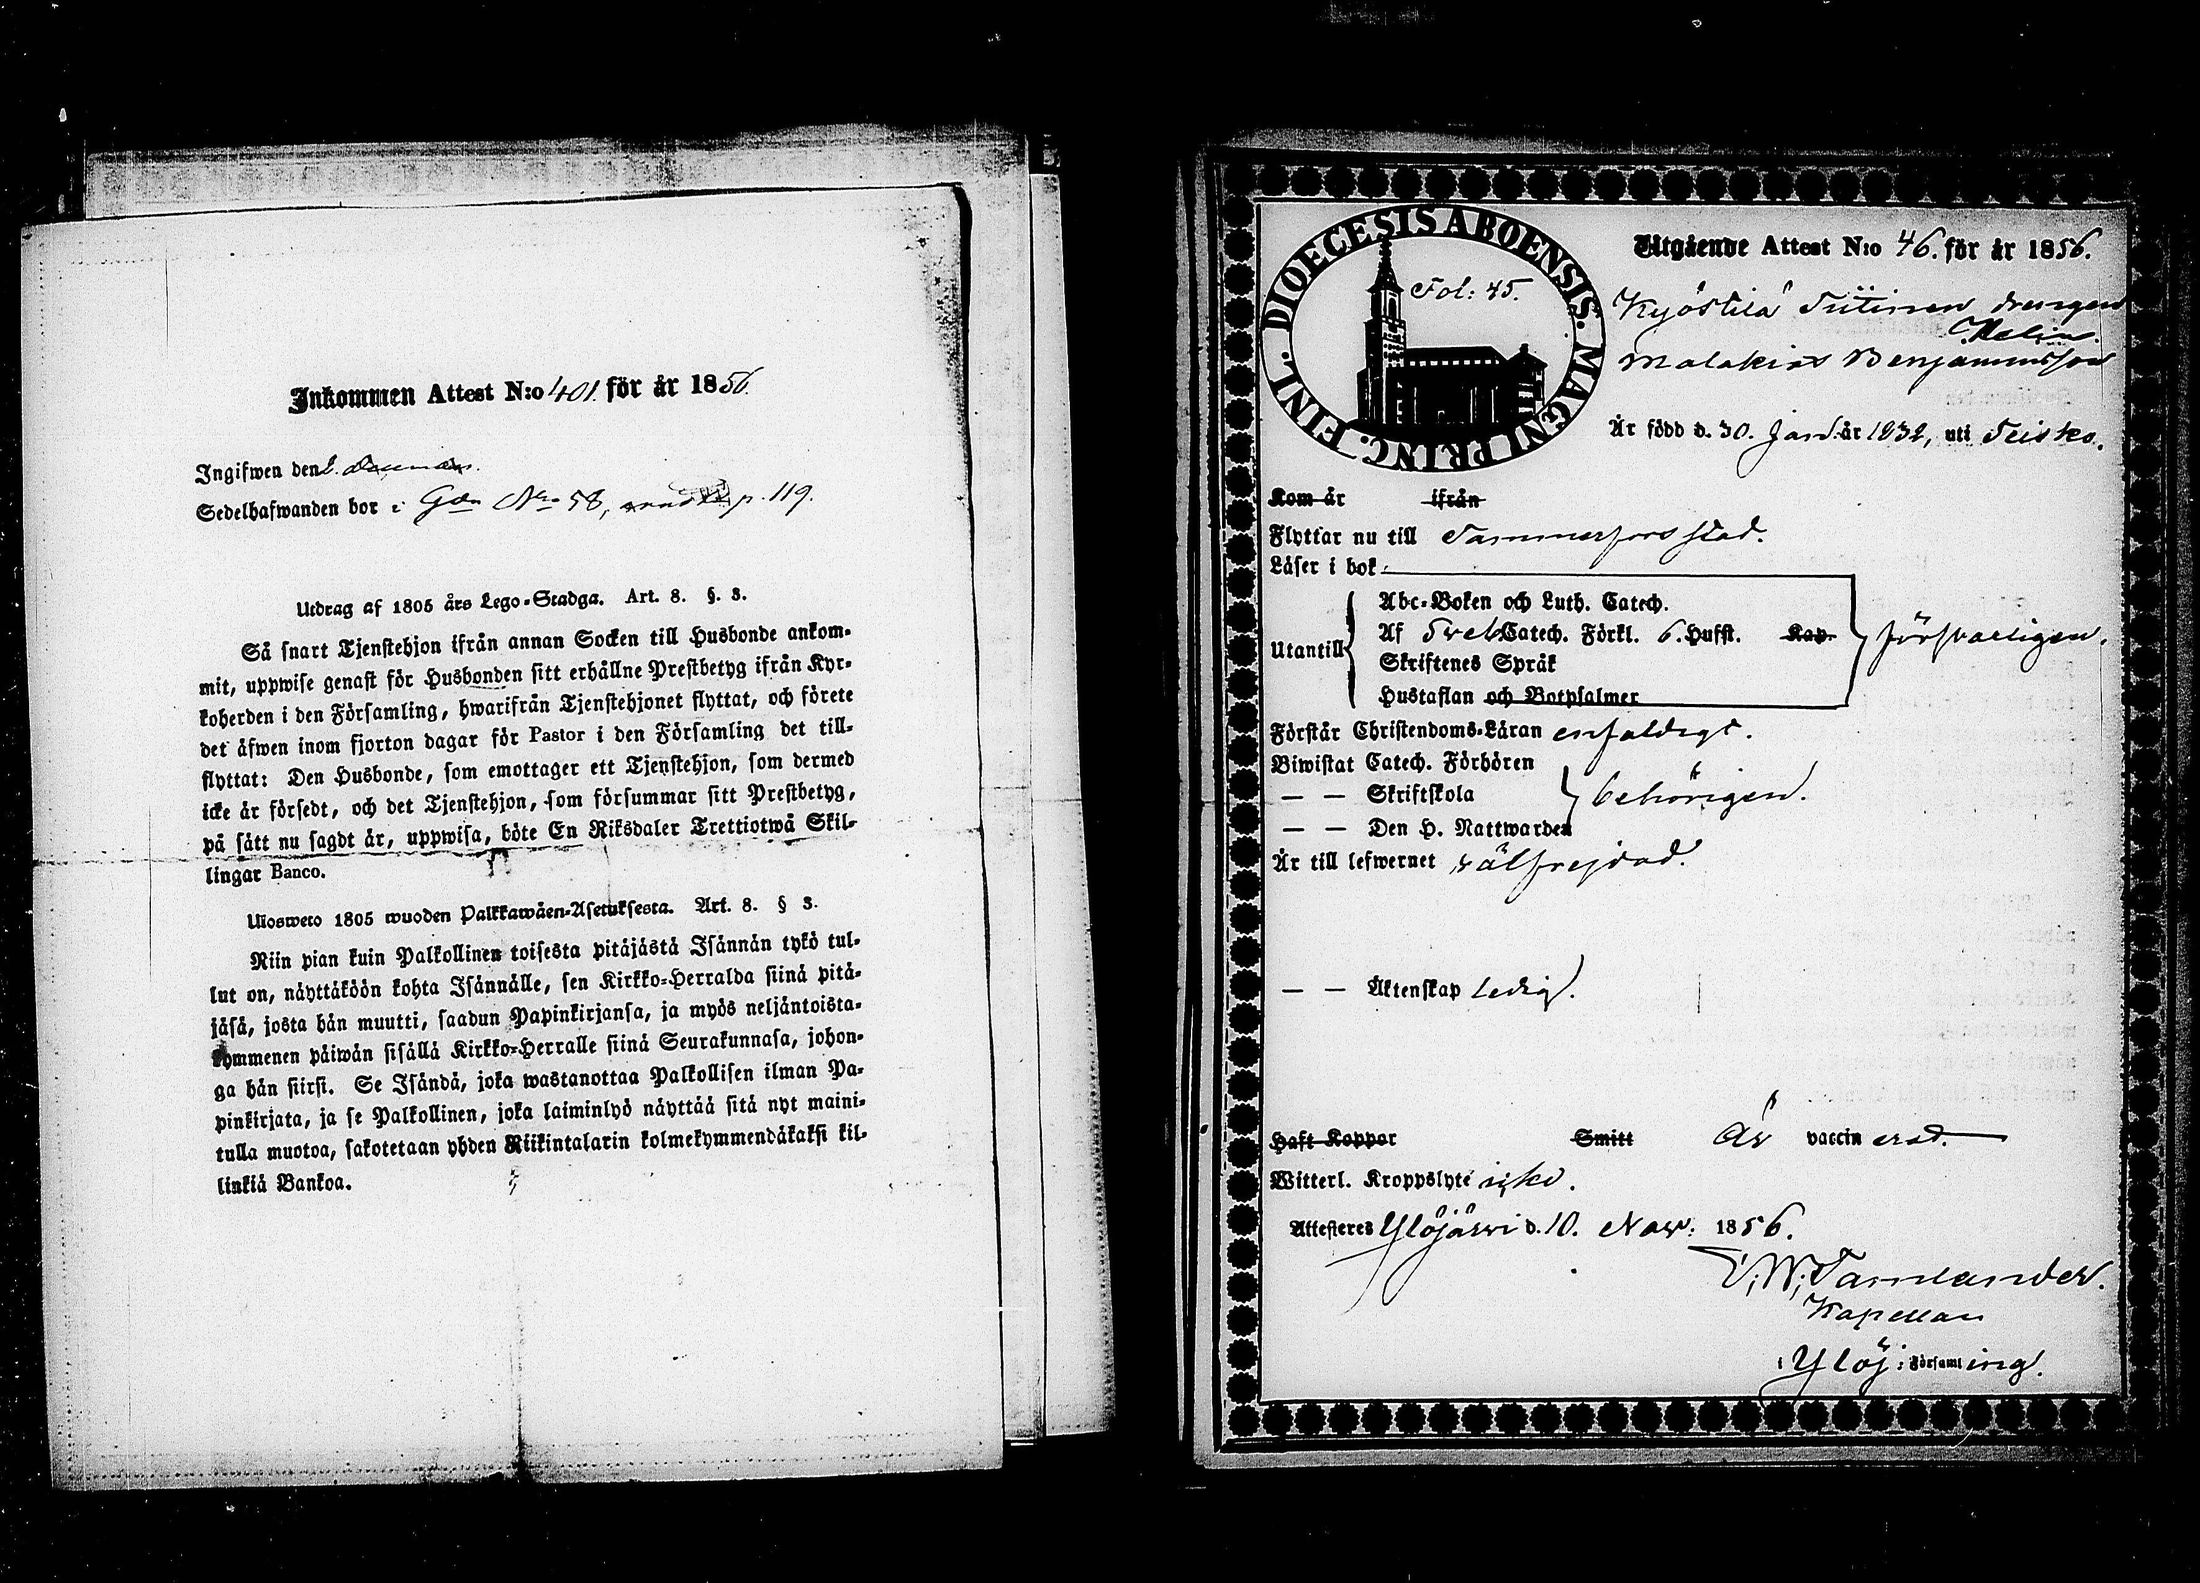 Inkommen Attest N:o 401. för år 1856.
Ingifwen den
Sedelhafwanden bor i Gdn No 58, p. 119.
Utdrag af 1805 års Lego-Stadga. Art. 8. §. 3.
Så snart Tjenstehjon ifrån annan Socken till Husbonde ankom-
mit, uppwise genast för Husbonden sitt erhållne Prestbetyg ifrån Kyr-
koherden i den Församling, hwarifrån Tjenstehjonet flyttat, och förete
det äfwen inom fjorton dagar för Pastor i den Församling det till-
flyttat: Den Husbonde, som emottager ett Tjenstehjon, som dermed
icke är försedt, och det Tjenstehjon, som försummar sitt Prestbetyg,
på sätt nu sagdt är, uppwisa, böte En Riksdaler Trettiotwå Skil-
lingar Banco.
Ulosweto 1805 wuoden Palkkawäen-Asetuksesta. Art. 8. § 3.
Niin pian kuin Palkollinen toisesta pitäjästä Isännän tykö tul-
lut on, näyttäköön kohta Isännälle, sen Kirkko-Herralda siinä pitä-
jäsä, josta hän muutti, saadun Papinkirjansa, ja myös neljäntoista-
kymmenen päiwän sisällä Kirkko-Herralle siinä Seurakunnasa, johon-
ga hän siirsi. Se Isändä, joka wastanottaa Palkollisen ilman Pa-
pinkirjata, ja se Palkollinen, joka laiminlyö näyttää sitä nyt maini-
tulla muotoa, sakotetaan yhden Riikintalarin kolmekymmendäkaksi kil-
linkiä Bankoa.
DIOECESIS ABOENSIS. MAGNI PRINC. FINL.
Fol: 45.
Utgående Attest N:o 46. för år 1856.
Kyöstilä Tiitinen drengen
Helin.
Malakias Benjaminsson
Är född d. 30. Jan. år 1832, uti Teisko.
Kom år ifrån
Flyttar nu till Tammerfors stad.
Läser i bok
Abc-Boken och Luth. Catech.
Utantill Af Catech. Förkl. 6. Hufst. Kap. försvarligen.
Skriftenes Språk
Hustaflan och Botpsalmer
Förstår Christendoms-Läran enfaldigt.
Biwistat Catech. Förhören
— — Skriftskola behörigen.
— — Den H. Nattwarden
Är till lefwernet välfrejdad.
— — Äktenskap ledig.
Haft Koppor Smitt Är vaccinerad.
Witterl. Kroppslyte icke.
Attesteres Ylöjärvi d. 10. Nov: 1856.
Kapellan
i Ylöj: Församling.